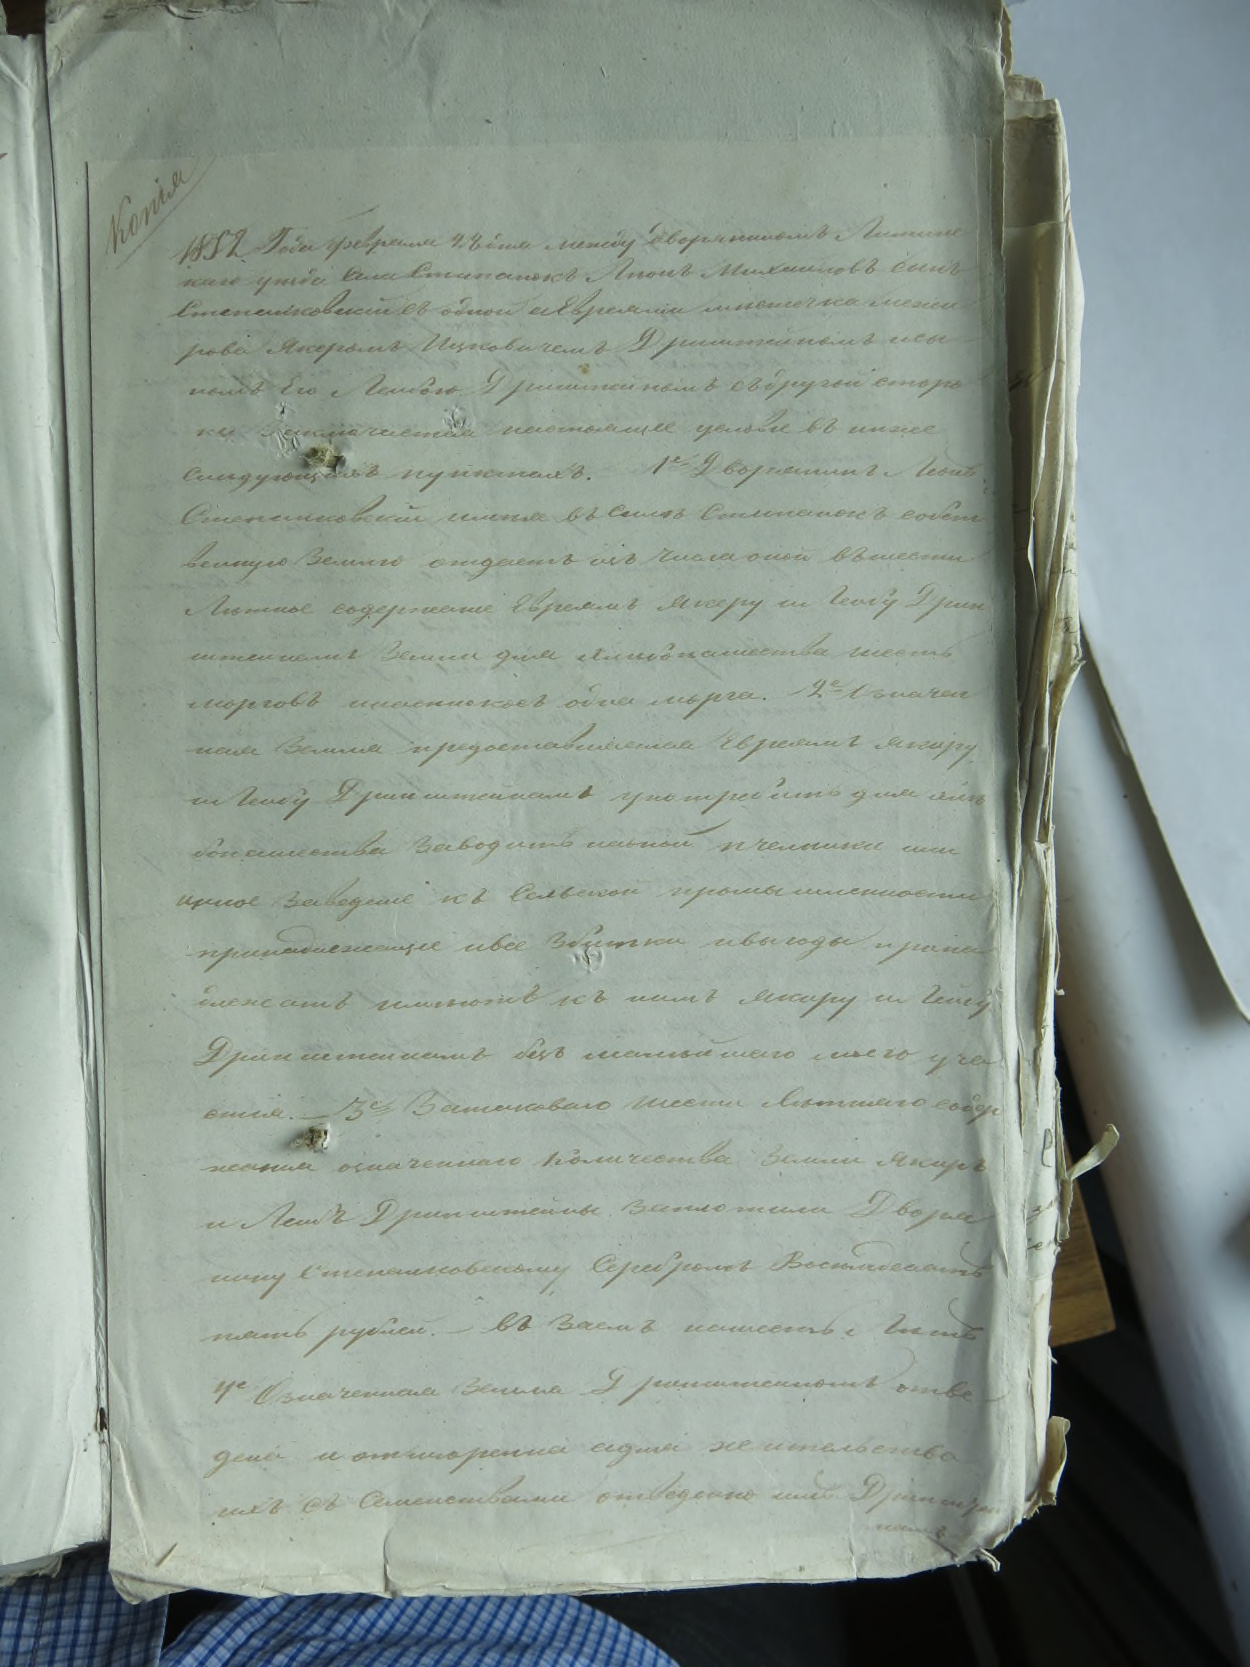 Копія
1852 Года февраля 22 дня между дворяниномъ Литинс
каго уезда села Степанокъ Яномъ Михайловъ сынъ
Степанковскій съ одной а Евреями местечка Межи
рова Якеромъ Ицковичемъ Дринштейномъ и сы
номъ Его Лейбою Дринштейномъ съ другой сторо
ны Заключается настоящее условіе въ ниже
следующихъ пунктахъ. 1е Дворянинъ
Степанковскій имея въ селе Степанокъ собст
венную Землю отдаетъ изъ числа оной въ шести
Летное содержаніе Евреямъ Якеру и Дрин
штейнамъ Земли для хлебопашества шесть
морговъ одна морга. 2е Означен
ная Земля предоставляется Евреямъ Якиру
и Дринштейнамъ употребить для хле
бопашества Заводить пчельники или
иное Заведеніе къ Сельской промышленности
принадлежащіе и все Збитки и выгоды прина
длежать имеютъ къ нимъ Якиру и
Дринштейнамъ безъ малейшаго моего уча
стія. — 3е За таковаго шести Летняго содер
жанія означеннаго Количества Земли Якиръ
и Лейбъ Дринштейны Заплотили Дворя
нину Степанковскому Серебромъ Восемдесятъ
пять рублей. — въ Заемъ
4е Означенная Земля Дринштейномъ отве
дена и отмежевана а для жительства
ихъ съ Семействами отведенно имъ Дринштей
намъ